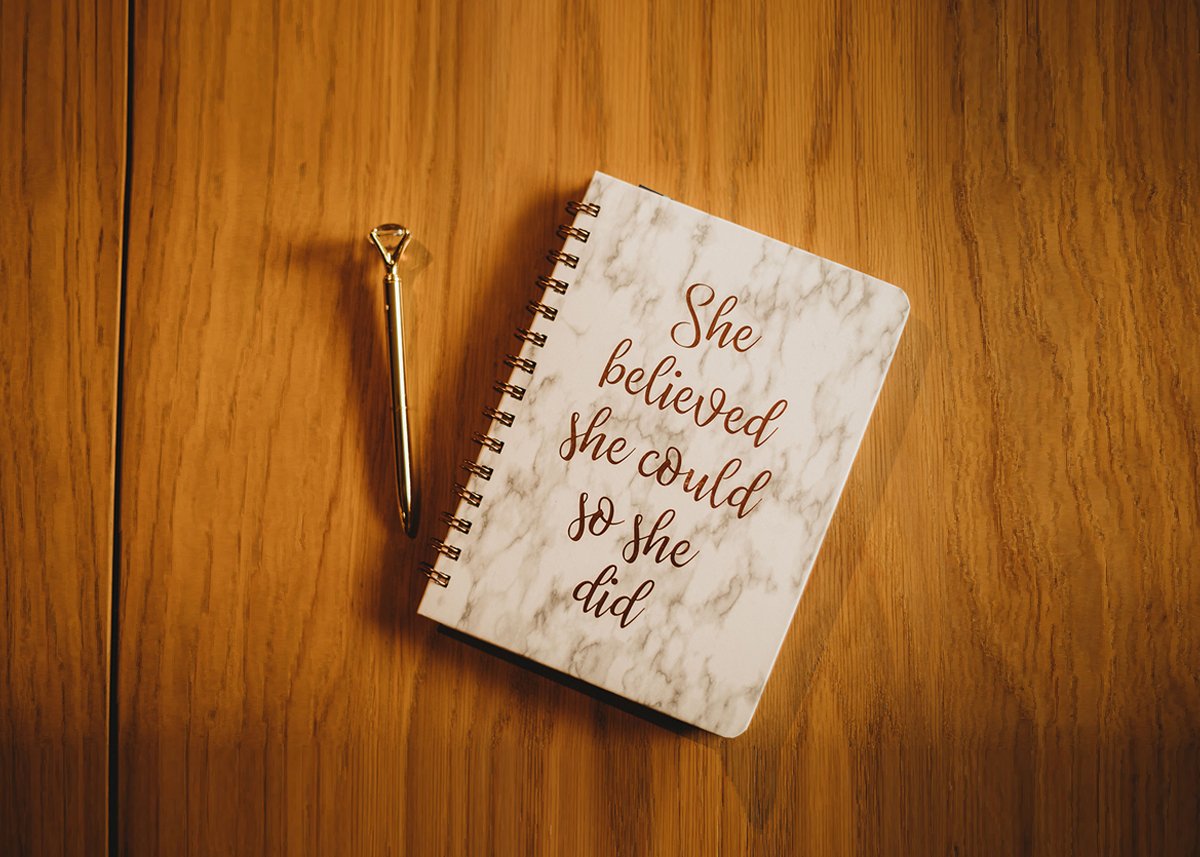 She
believed
she could
so she
did